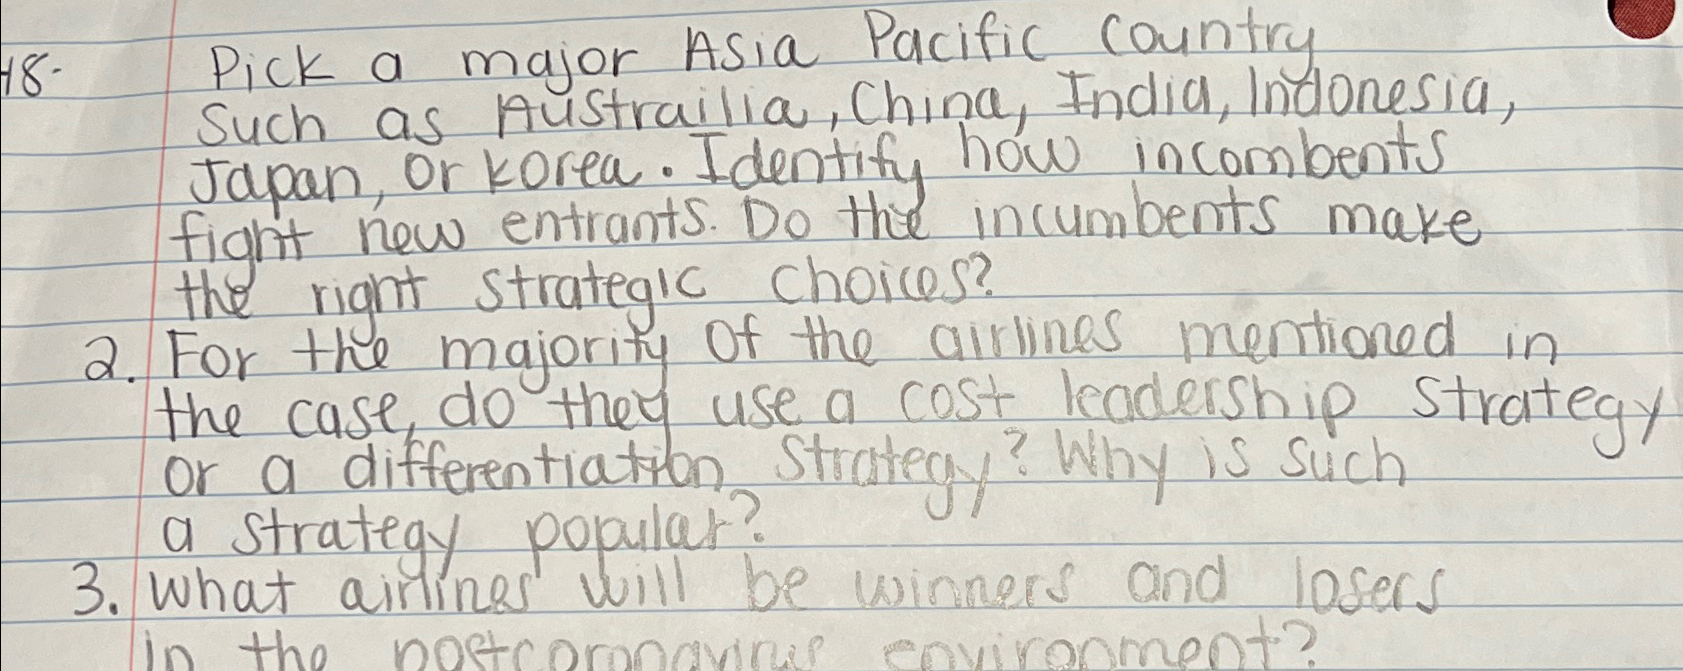 18. Pick a major Asia Pacific country
such as Austrailia, China, India, Indonesia,
Japan, or Korea. Identify how incombents
fight new entrants. Do the incumbents make
the right strategic choices?
2. For the majority of the airlines mentioned in
the case, do they use a cost leadership strategy
or a differentiation strategy? Why is such
a strategy popular?
3. What airlines will be winners and losers
in the postcoronavirus environment?